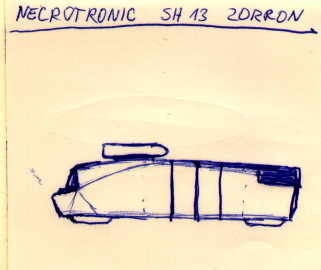 NECROTRONIC SH 13 ZORRON